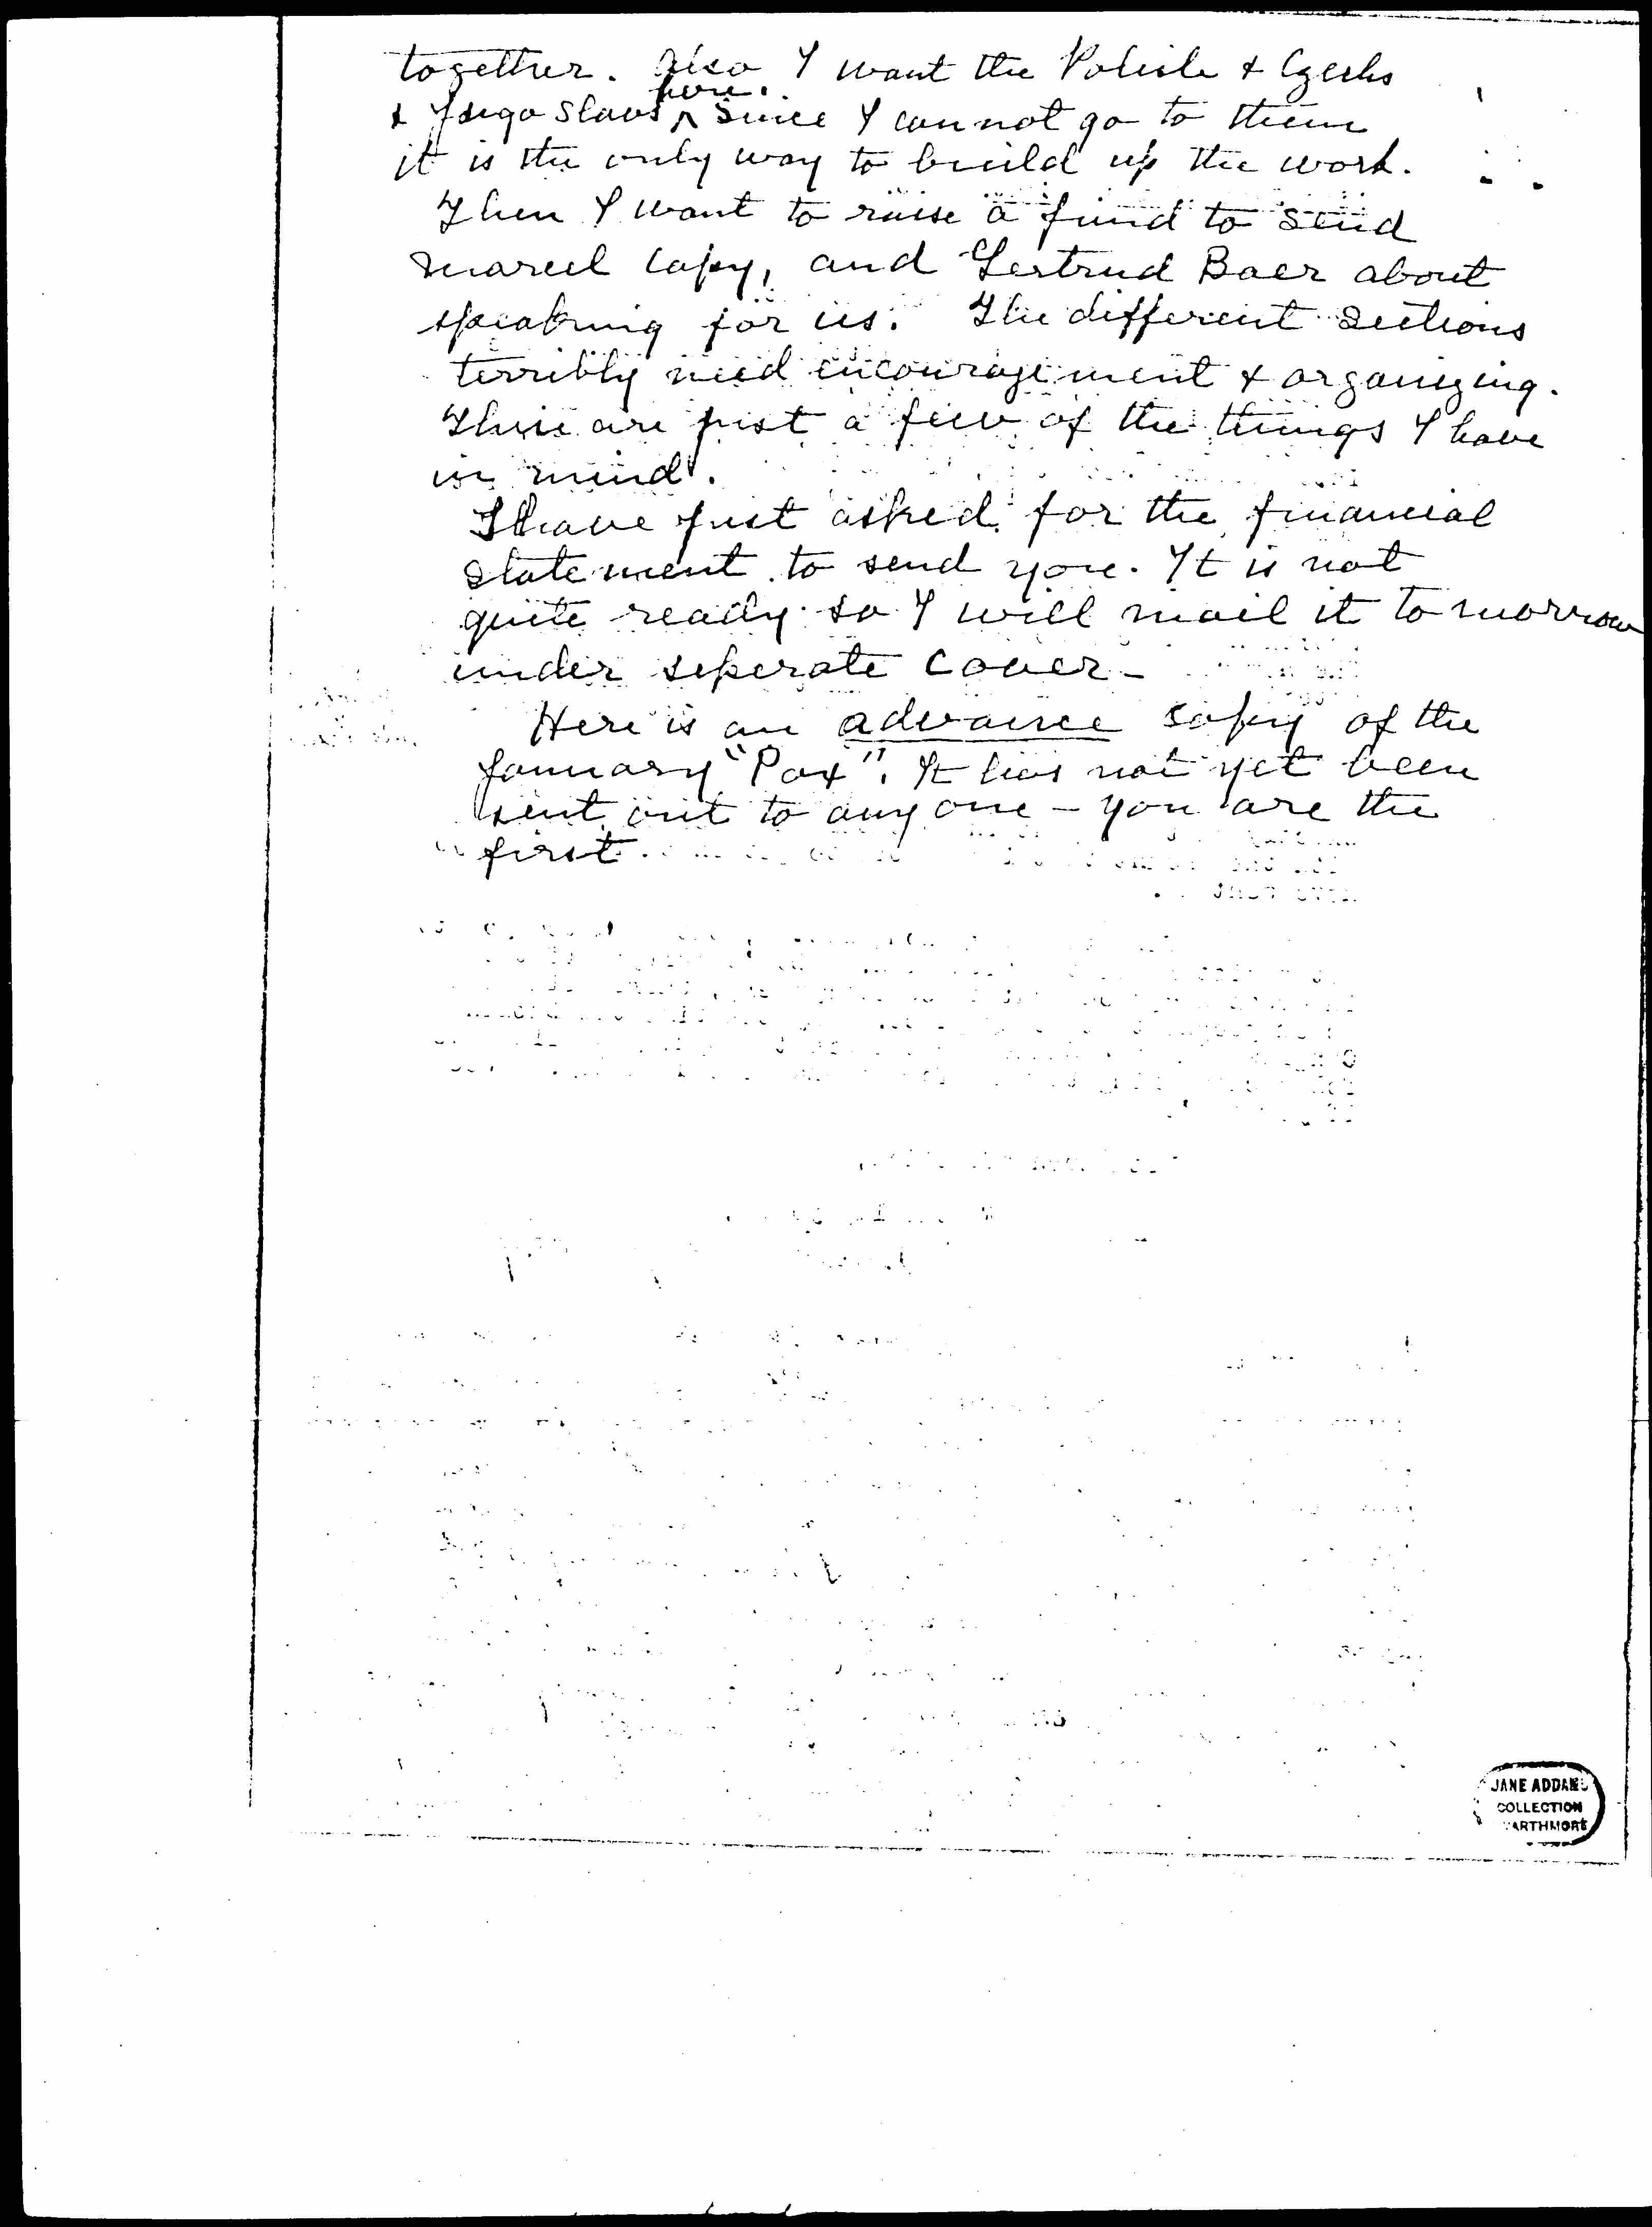 together. Also I want the Polish & Czechs
here.
& Jugo Slavs ^ Since I can not go to them
it is the only way to build up the work.
Then I want to raise a fund to send
Marcel Capy, and Gertrud Baer about
speaking for us. The different Sections
terribly need encouragement & organizing.
These are just a few of the things I have
in mind.
I have just asked for the financial
statement to send you. It is not
quite ready so I will mail it tomorrow
under seperate cover -
Here is an advance copy of the
January "Pax". It has not yet been
sent out to any one - you are the
first.
JANE ADDAMS
COLLECTION
SWARTHMORE